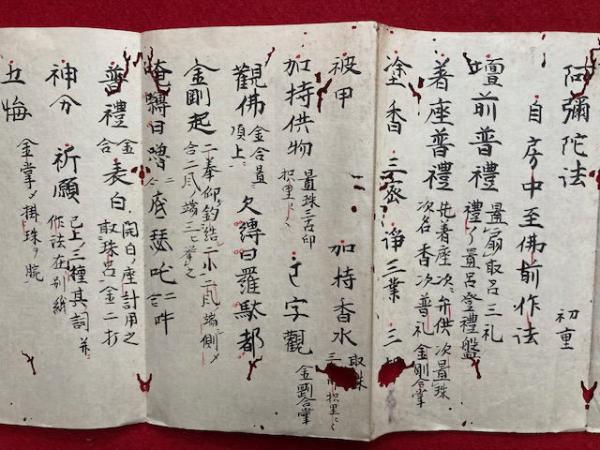 阿彌陀法　初重
自房中至佛前作法
壇前普禮　置扇取呂三礼
禮了置呂登禮盤
着座普禮　先着座次弁供次置珠
次名香次普礼金剛合掌
塗香　三密　淨三業　三
被甲　加持香水　取珠
加持供物　置珠三古印
字觀　金剛合掌
觀佛　金合置
頂上　欠縛日羅駄都
金剛起　二拳仰鈎結二小二風端側
合二風端三挙之
唵嚩日嚕二合底瑟吒二合吽
普禮　金
合　表白　開白座計用之
取珠呂金二打
神分　祈願　已上三種其詞并
作法在別紙
五悔　金掌〆掛珠腕